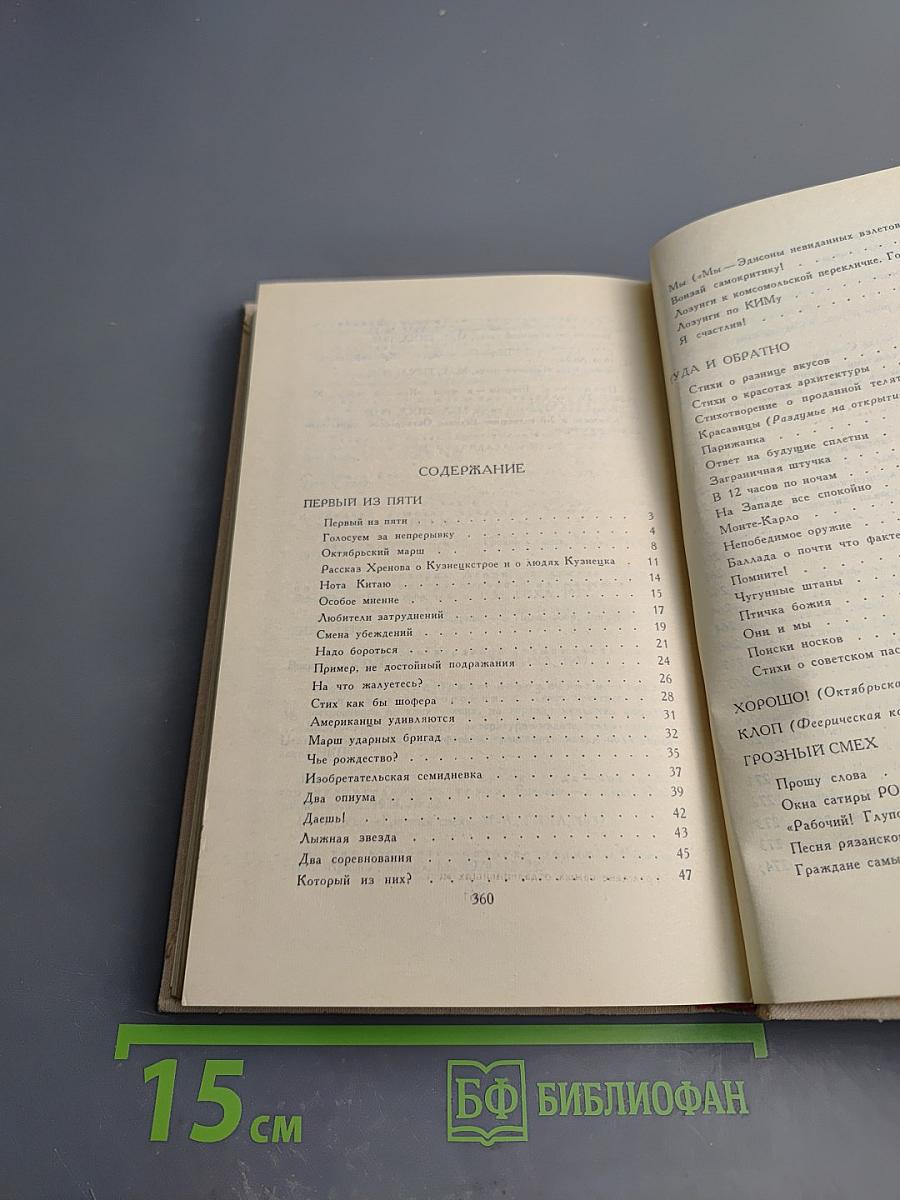 СОДЕРЖАНИЕ
ПЕРВЫЙ ИЗ ПЯТИ
Первый из пяти . . . . . . . . . . . . . . 3
Голосуем за непрерывку . . . . . . . . . . 4
Октябрьский марш . . . . . . . . . . . . . 8
Рассказ Хренова о Кузнецкстрое и о людях Кузнецка . 11
Нота Китаю . . . . . . . . . . . . . . . 14
Особое мнение . . . . . . . . . . . . . . 15
Любители затруднений . . . . . . . . . . . 17
Смена убеждений . . . . . . . . . . . . . 19
Надо бороться . . . . . . . . . . . . . . 21
Пример, не достойный подражания . . . . . . . 24
На что жалуетесь? . . . . . . . . . . . . 26
Стих как бы шофера . . . . . . . . . . . . 28
Американцы удивляются . . . . . . . . . . . 31
Марш ударных бригад . . . . . . . . . . . . 32
Чье рождество? . . . . . . . . . . . . . . 35
Изобретательская семидневка . . . . . . . . . 37
Два опиума . . . . . . . . . . . . . . . 39
Даешь! . . . . . . . . . . . . . . . . . 42
Лыжная звезда . . . . . . . . . . . . . . 43
Два соревнования . . . . . . . . . . . . . 45
Который из них? . . . . . . . . . . . . . 47
360
Мы («Мы — Эдисоны невиданных взлетов
Вонзай самокритику! . . . . . .
Лозунги к комсомольской перекличке. Го
Лозунги по КИМу . . . . . .
Я счастлив! . . . . . .
УДА И ОБРАТНО
Стихи о разнице вкусов . . . .
Стихи о красотах архитектуры . . .
Стихотворение о проданной телят
Красавицы (Раздумье на открыти
Парижанка . . . . . .
Ответ на будущие сплетни . . .
Заграничная штучка . . . .
В 12 часов по ночам . . . .
На Западе все спокойно . . .
Монте-Карло . . . . .
Непобедимое оружие . . . .
Баллада о почти что факте
Помните! . . . . .
Чугунные штаны . . . .
Птичка божия . . . .
Они и мы . . . . .
Поиски носков . . . .
Стихи о советском пас
ХОРОШО! (Октябрьска
КЛОП (Феерическая ко
ГРОЗНЫЙ СМЕХ
Прошу слова . .
Окна сатиры РО
«Рабочий! Глуп
Песня рязанског
Граждане самы
15 см
БФ БИБЛИОФАН